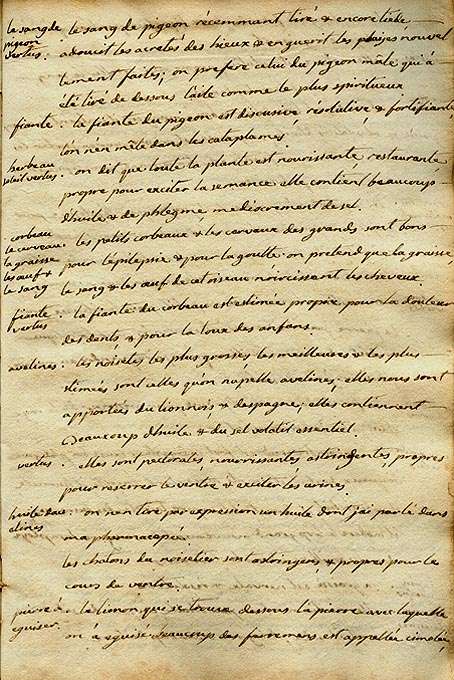 le sang de le sang de pigeon récemmant tiré & encore tiède
pigeon
vertus. adoucit les acretés des hieux & en guerit les plaijes nouvel
tement faites; on prefere celui du pigeon mâle qui à
été tiré de dessous l'aile comme le plus spiritueux
fiante. la fiante du pigeon est discusive résolutive & fortifiante,
l'on n'en mêle dans les cataplames.
herbeau
soleil vertus. on dit que toute la plante est nourissante restaurante
propre pour exciter la semance elle contient beaucoup
d'huile & de phlegme mediocrement de sel.
corbeau
le cerveau. les petits corbeaux & les cervaux des grands sont bons
la graisse
les œuf & pour l'epilepsie & pour la goutte. on pretend que la graisse
le sang le sang & les œuf de cet oiseau noircissent les cheveux.
fiante. la fiante du corbeau est estimée propre pour la douleur
vertus des dents & pour la toux des anfans.
avelines. les noisetes les plus grosses les meilleures & les plus
stimées sont celles qu'on n'apelle avelines; elles nous sont
apportées du lionnois & d'espagne; elles contiennent
beaucoup d'huile & du sel volatil essentiel.
vertus. elles sont pectorales, nourrissantes, astringentes, propres
pour reserrer le ventre & exciter les urines.
huile d'av on n'en tire par expression un huile dont j'ai parlé dans
elines ma pharmacopée.
les chatons du noiselier sont astringens & propres pour le
cours de ventre.
pierre à. le limon qui se trouve dessous la pierre avec laquelle
eguiser. on à eguisé beaucoup des ferremens est appellée cimolée,